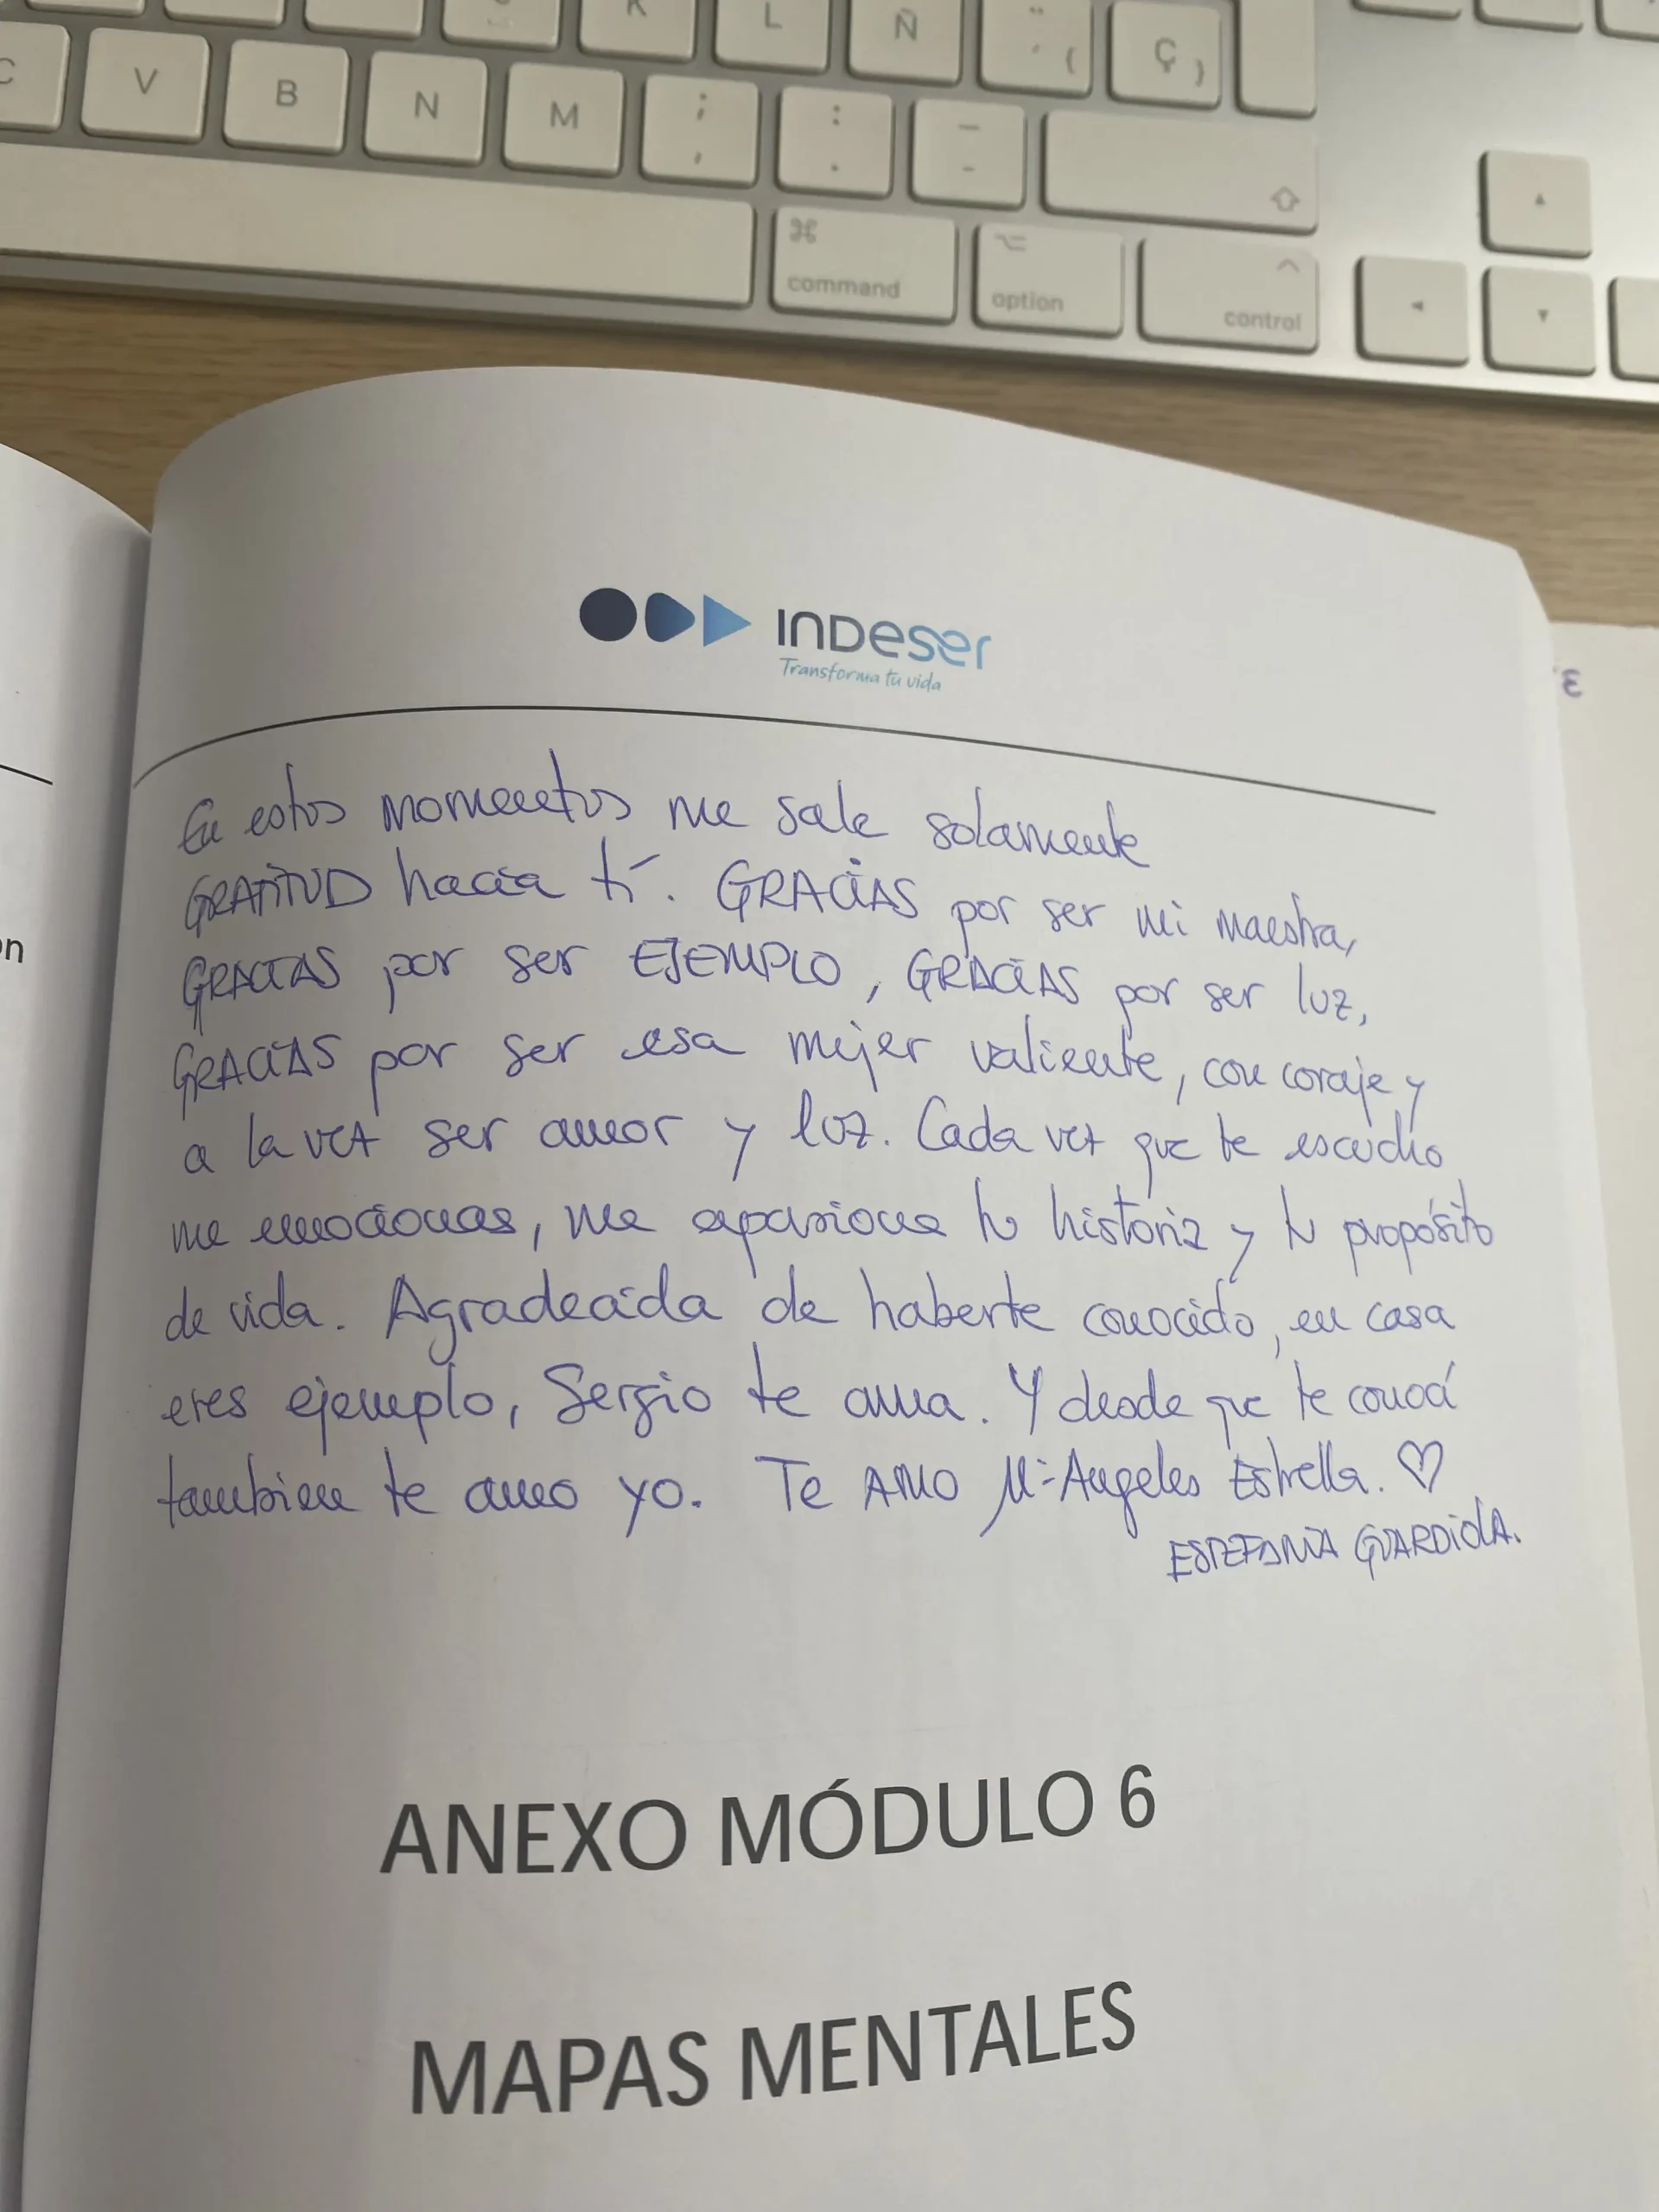 K L Ñ ¨ ´ { Ç }
C V B N M ; , : . _ -
⌘ command ⌥ option ^ control
INDESER
Transforma tu vida
En estos momentos me sale solamente
GRATITUD hacia tí. GRACIAS por ser mi maestra,
GRACIAS por ser EJEMPLO, GRACIAS por ser luz,
GRACIAS por ser esa mujer valiente, con coraje y
a la vez ser amor y luz. Cada vez que te escucho
me emocionas, me apasiona tu historia y tu propósito
de vida. Agradecida de haberte conocido, en casa
eres ejemplo, Sergio te ama. Y desde que te conocí
tambien te amo yo. Te AMO Mª Angeles Estrella. ♡
ESTEFANIA GUARDIOLA.
ANEXO MÓDULO 6
MAPAS MENTALES